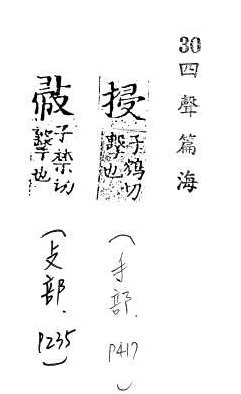 30四聲篇海
子鴆切
擊也
(手部.
P417)
子禁切
擊也
(攴部.
P235)